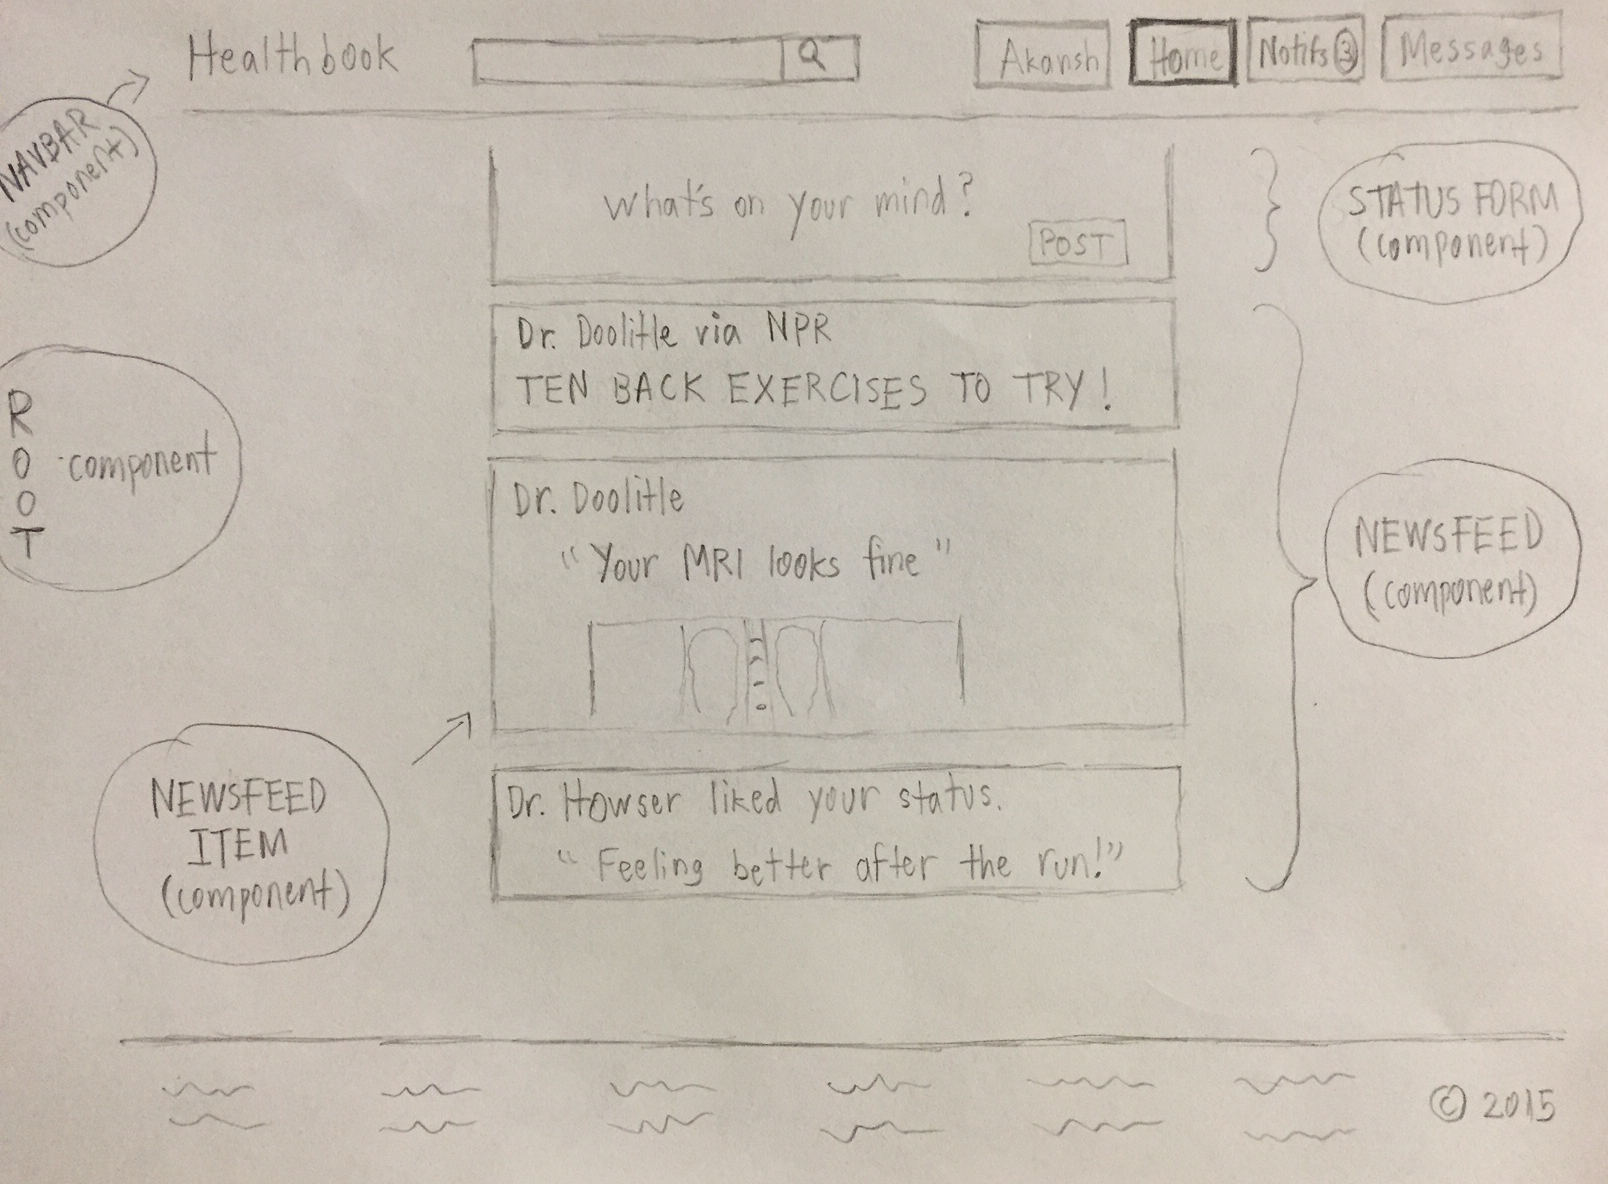 Healthbook
Akansh
Home
Notifs 3
Messages
NAVBAR
(component)
What's on your mind?
POST
STATUS FORM
(component)
Dr. Doolitle via NPR
TEN BACK EXERCISES TO TRY!
ROOT component
Dr. Doolitle
"Your MRI looks fine"
NEWSFEED
(component)
NEWSFEED
ITEM
(component)
Dr. Howser liked your status.
"Feeling better after the run!"
© 2015